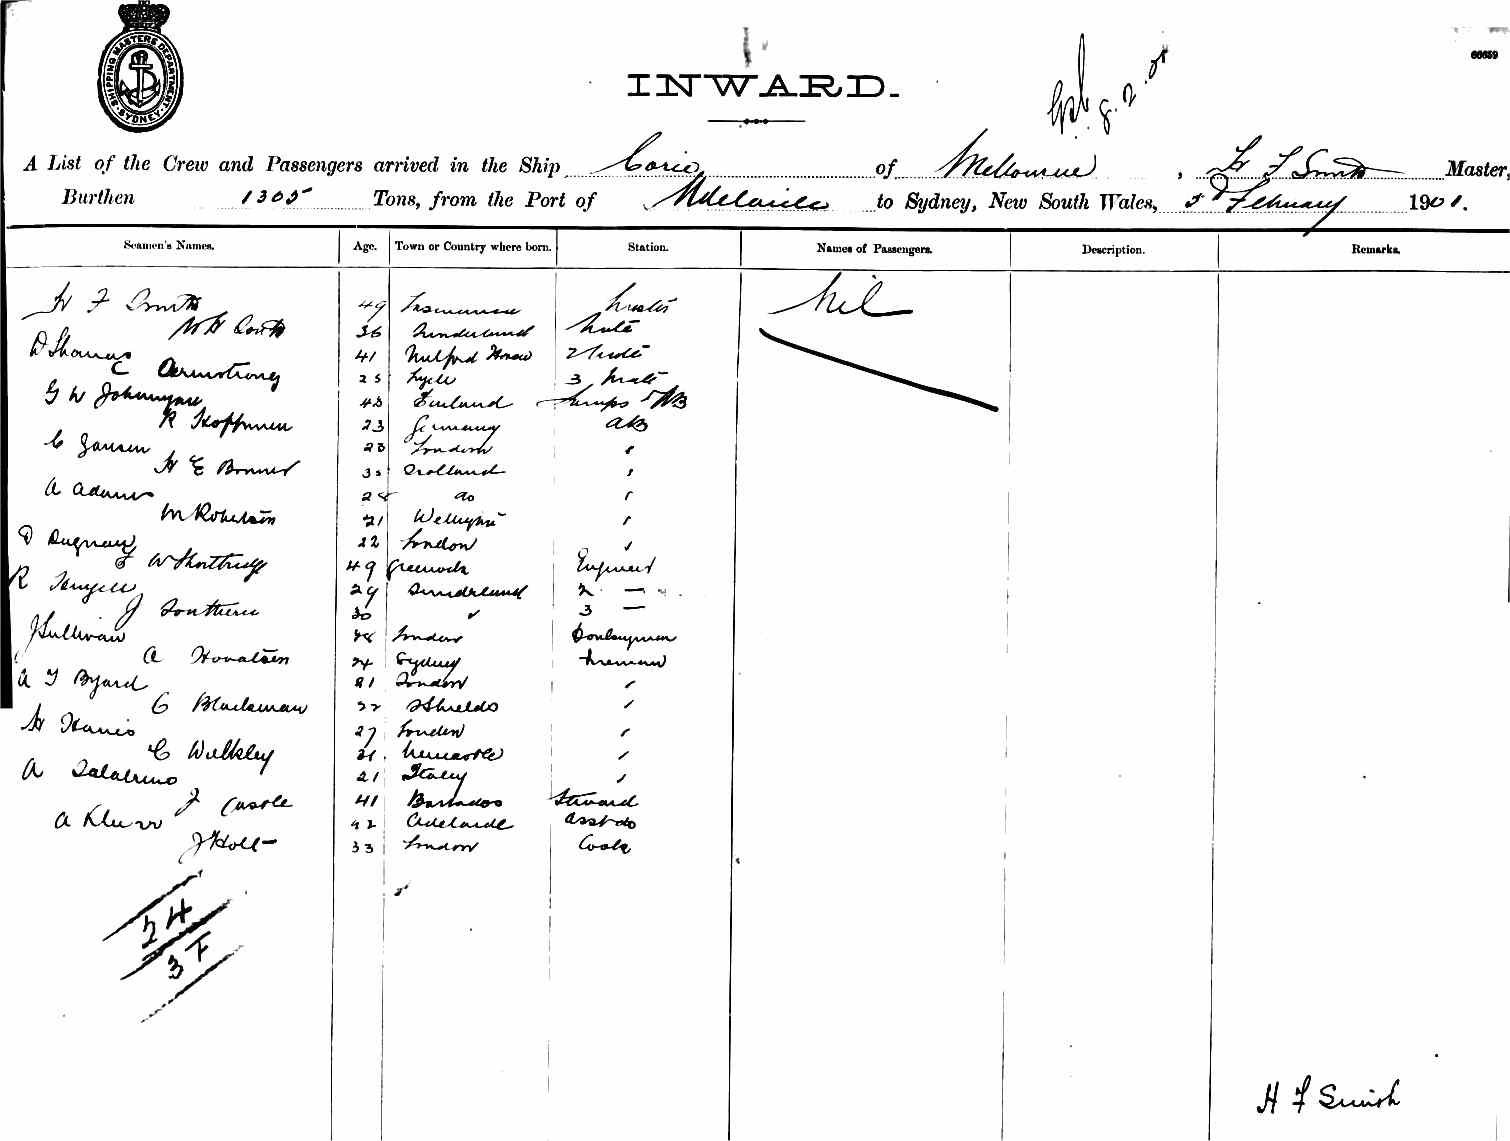 SHIPPING MASTERS DEPARTMENT SYDNEY
60659
INWARD.
8. 2. 01
A List of the Crew and Passengers arrived in the Ship Coric of Melbourne, H F Smith Master,
Burthen 1305 Tons, from the Port of Adelaide to Sydney, New South Wales, 5 February 1901.
Seamen's Names. Age. Town or Country where born. Station. Names of Passengers. Description. Remarks.
H F Smith 49 Tasmania Master Nil
36 Sunderland Mate
D Thomas 41 Milford Haven 2 Mate
C Armstrong 25 Lyell 3 Mate
G W 43 Finland Lamps & AB
R Hoffman 23 Germany AB
C Jansen 23 London "
H E 30 Holland "
A Adams 24 do "
M Robertson 21 "
D Duguay 22 London "
W 49 Greenock Engineer
R 29 Sunderland 2 —
J Southern 30 " 3 —
J Sullivan London Donkeyman
A 24 Sydney Fireman
A J Byard 21 London "
C Blackman 22 Shields "
H Harris 27 London "
C Walkley 31 Newcastle "
A 21 Italy "
J Castle 41 Barbados Steward
A 42 Adelaide Asst do
J Holt 33 London Cook
24
3 F
H F Smith